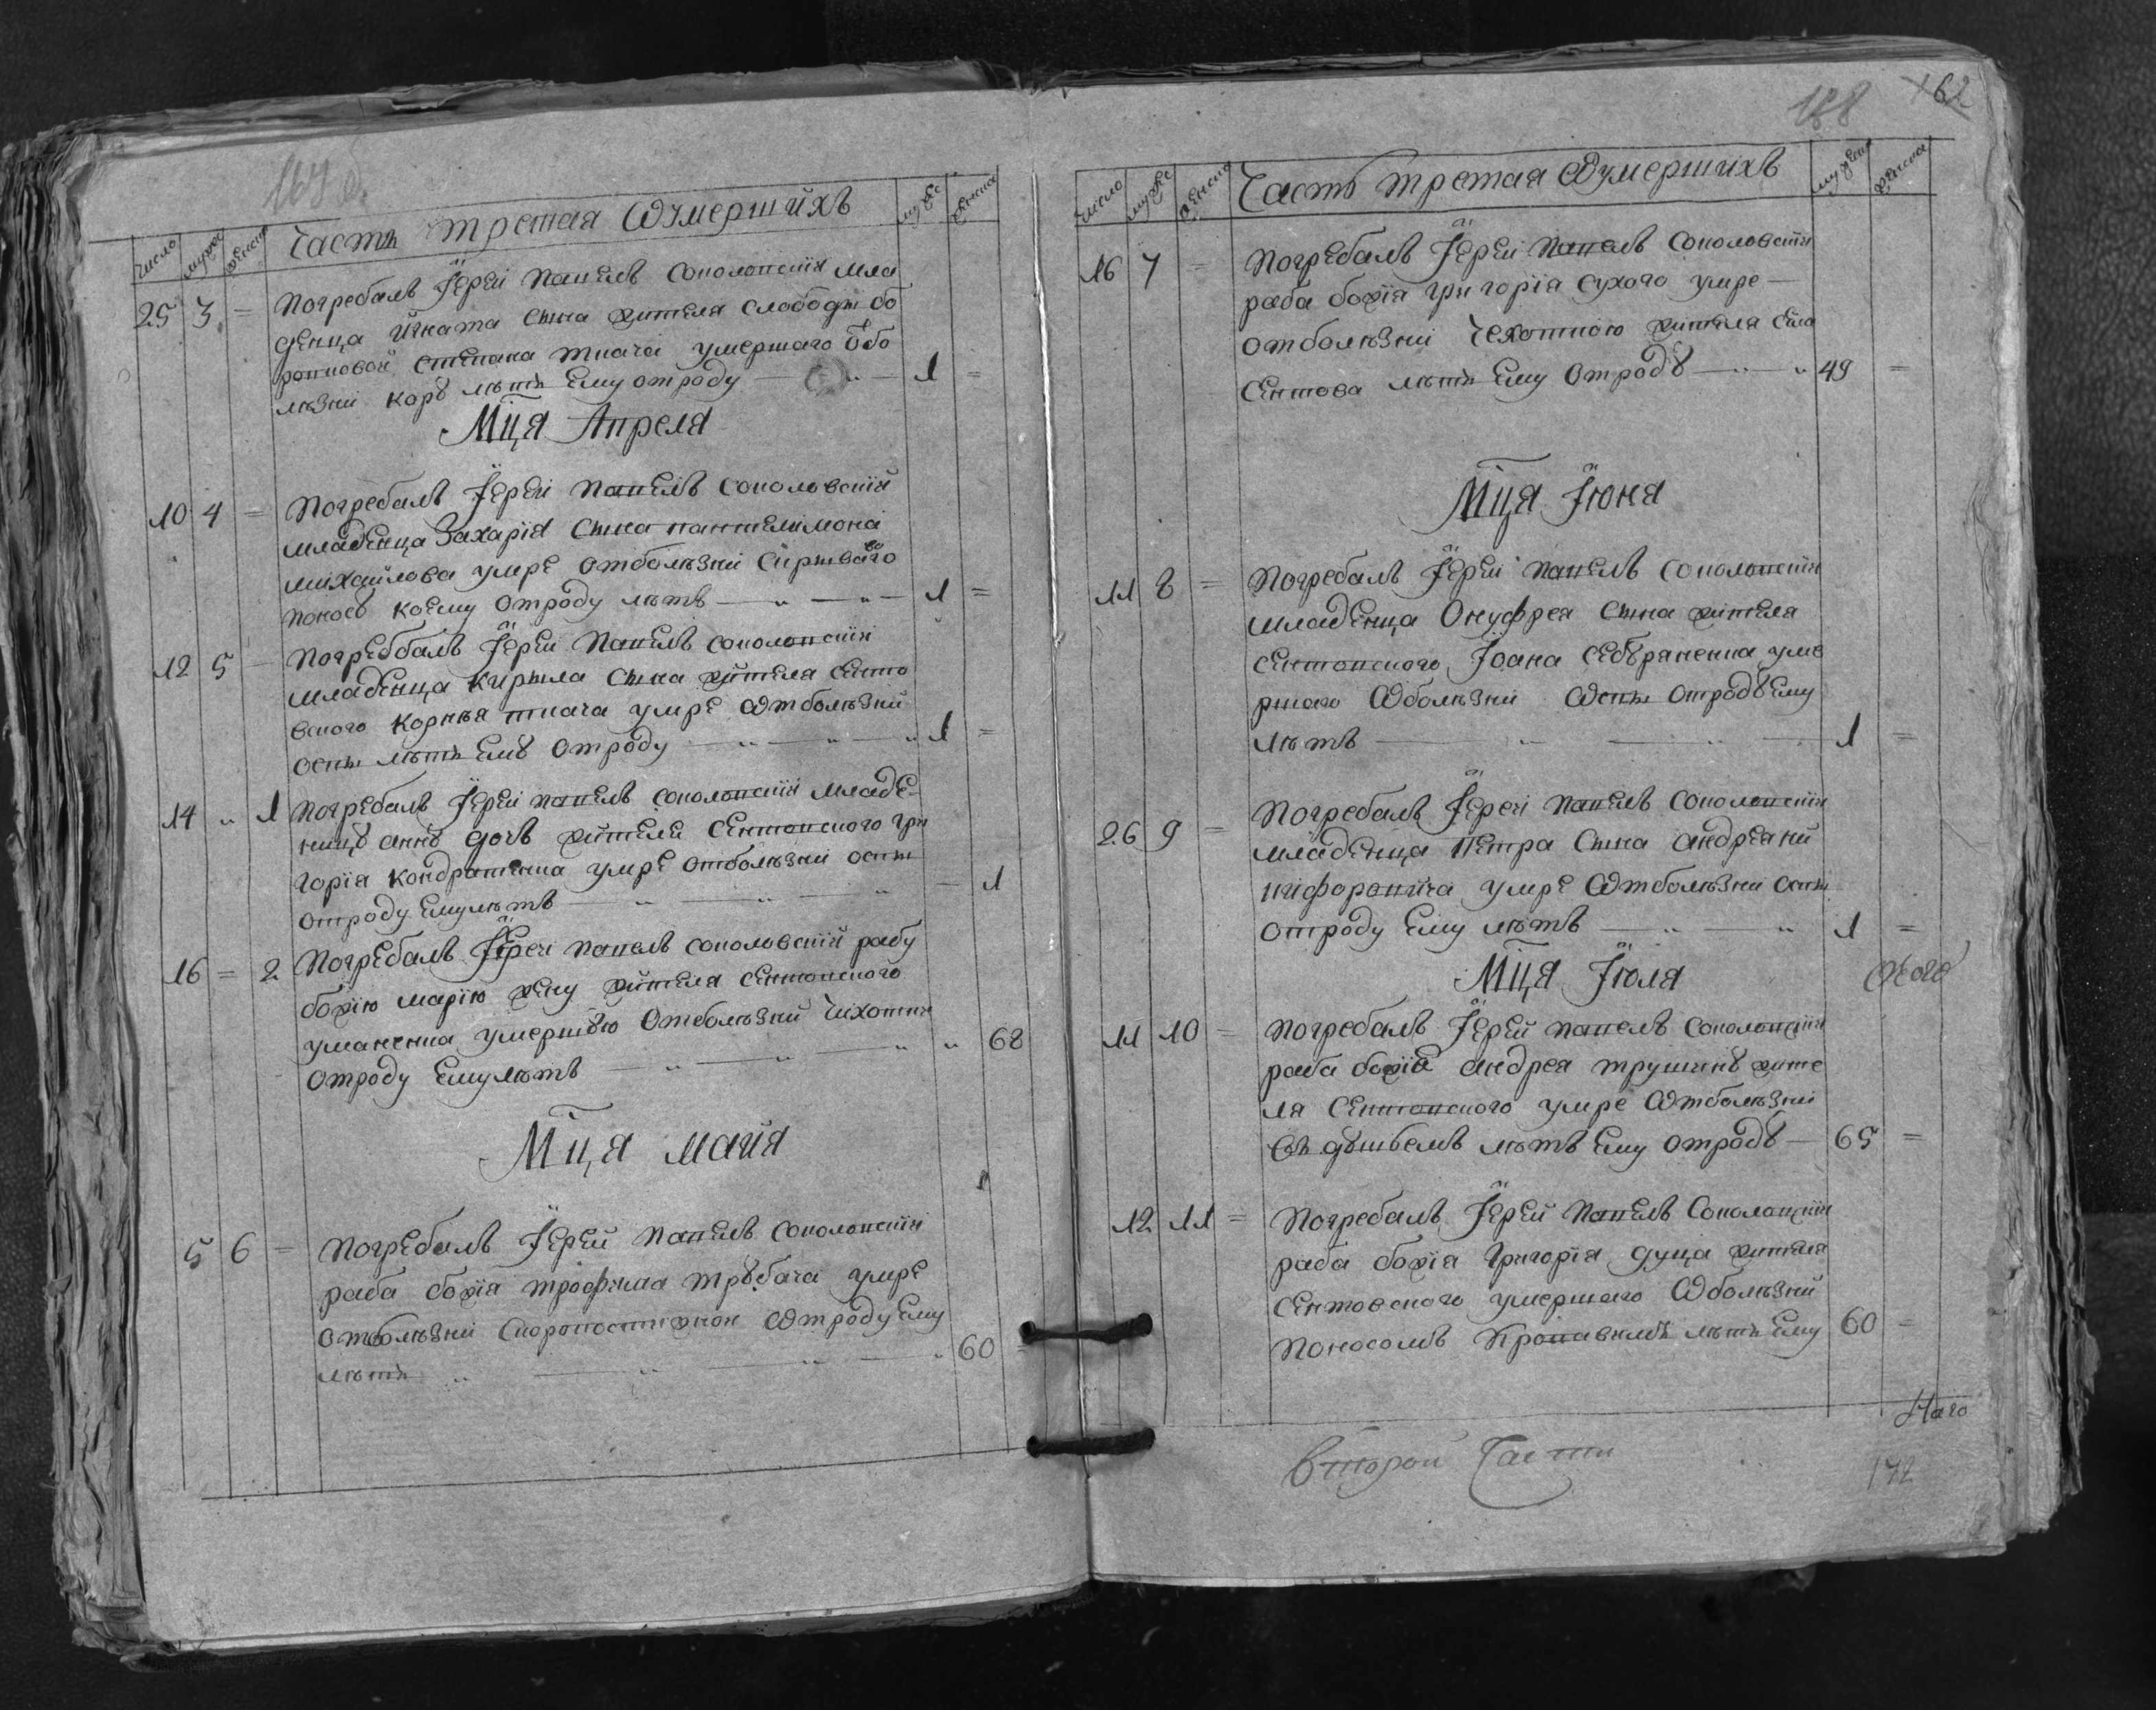 Часть третая Ѡумершихъ
число мужес женска
мужес женска
25 3 = Погребалъ Їерей Павелъ Соколовскїи мла
денца Игната сына жителя слободи бо
ровковой степана ткача умершаго ѿ бо
лѣзни коръ лѣтъ ему отроду 1 =
Мц̃а Апреля
10 4 = Погребалъ Їерей Павелъ соколовскїй
младенца Захарїя сына пантелимона
михайлова умре отболѣзни
поносъ коему отроду лѣтъ 1 =
12 5 – Погреббалъ Їерей Павелъ соколовскїи
младенца кирыла сына жителя сенто
вского корнѣя ткача умре Ѡтболѣзни
оспы лѣтъ емꙋ отроду 1 =
14 „ 1 Погребалъ Їерей павелъ соколовскїи младе
ницꙋ аннꙋ дочъ жителя Сентовского гри
горїя кондратенка умре отболѣзни оспы
отроду емулѣтъ 1
16 = 2 Погребалъ Їерей павелъ соколовскїй рабу
божїю марїю жену жителя сентовского
уманенка умершꙋю Отболѣзни чихотки
отроду Емулѣтъ 68
Мц̃а маия
5 6 = Погребалъ Їерей Павелъ соколовскїи
раба божїя трофима трꙋбача умре
отболѣзни Скоропостижной Ѡтроду ему
лѣтъ 60
162
Часть третая Ѡумершихъ
число мужес женска
мужеска женска
16 7 = Погребалъ Їерей Павелъ соколовскїи
раба божїя григорїя сухого умре
отболѣзни чехоткою жителя села
Сентова лѣтъ ему Отродꙋ 49 =
Мц̃а Їюня
11 8 = Погребалъ Їерей павелъ соколовскїи
младенца Онуфрея сына жителя
сентовского Їоана Себꙋраненка уме
ршаго Ѡболѣзни Ѡспы отродꙋ ему
лѣтъ 1 =
26 9 = Погребалъ Їерей Павелъ Соколовскїи
младенца Петра сына андрея ни
кифоровича умре Ѡтболѣзни оспы
отроду ему лѣтъ 1 =
Мц̃а Їюля
11 10 = Погребалъ Їерей павелъ соколовскїи
раба божїя андрея жите
ля Сентовского умре Ѡтболѣзни
лѣтъ ему отродꙋ 65 =
12 11 = Погребалъ Їерей Павелъ Соколовскїи
раба божїя Григорїя дуца жителя
Сентовского умершаго Ѡболѣзни
поносомъ кровавимъ лѣтъ ему 60 =
второй Части
172